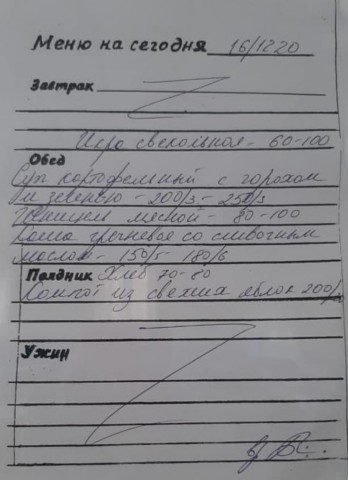 Меню на сегодня 16/12 20
Завтрак
Икра свекольная - 60-100
Обед
Суп картофельный с горохом
и зеленью - 200/3 - 250/3
мясной - 80 - 100
Каша гречневая со сливочным
маслом - 150/5 - 180/6
Полдник Хлеб 70-80
Компот из свежих яблок 200/
Ужин